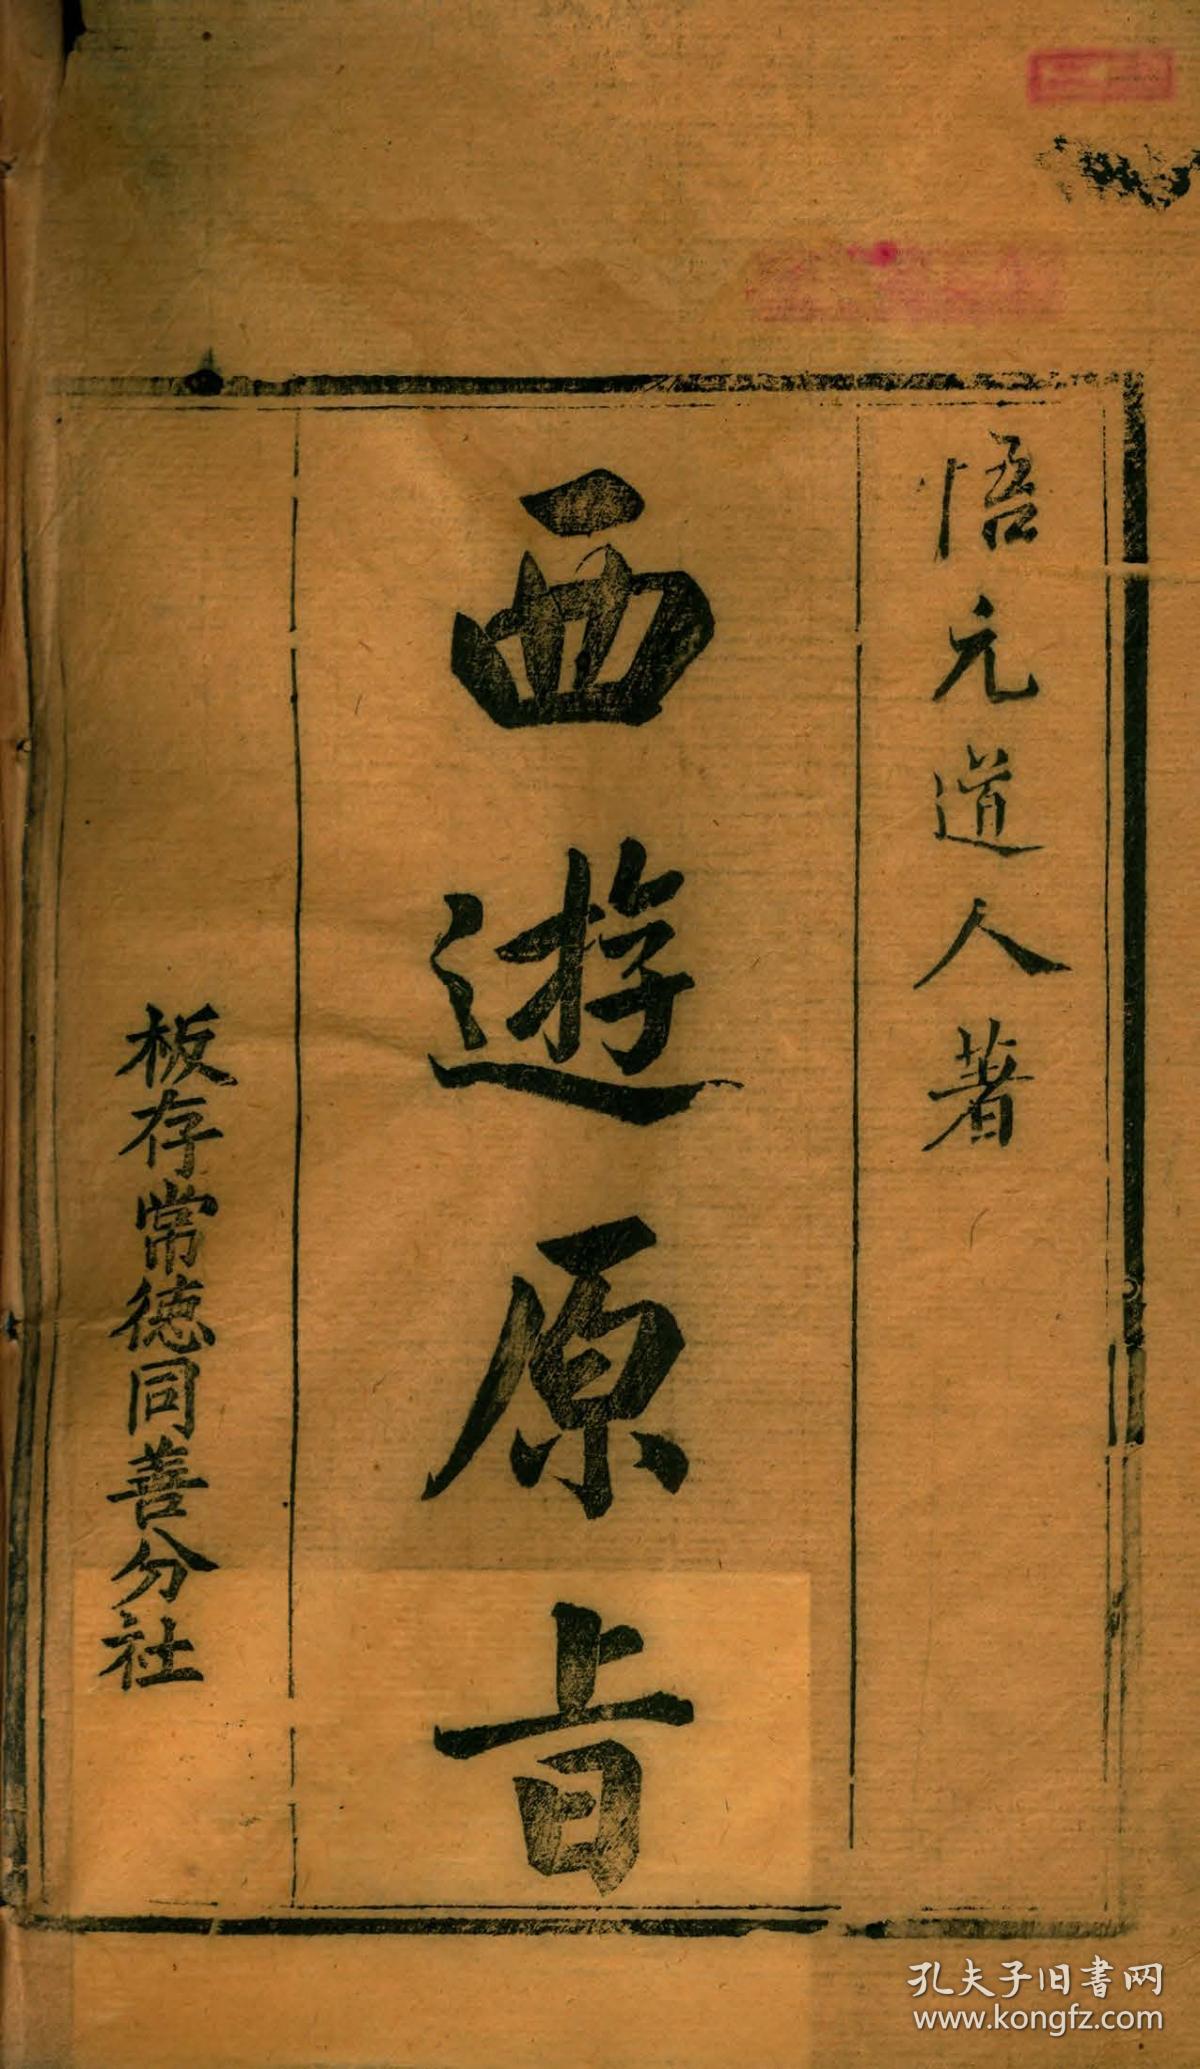 悟元道人著
西遊原旨
板存常德同善分社
孔夫子旧書网
www.kongfz.com